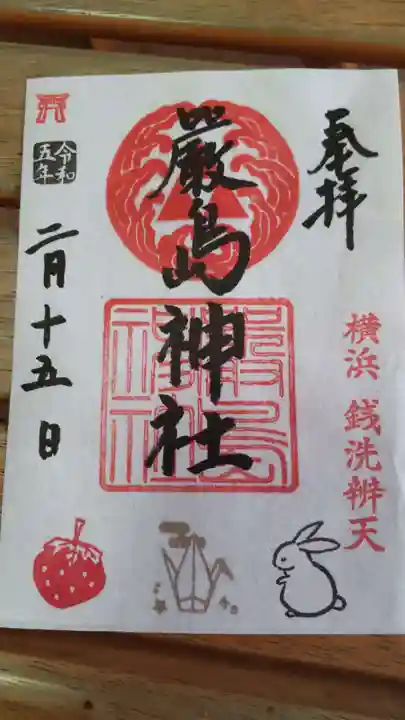 奉拝
横浜 銭洗辨天
嚴島神社
嚴島
神社
令和
五年
二月十五日